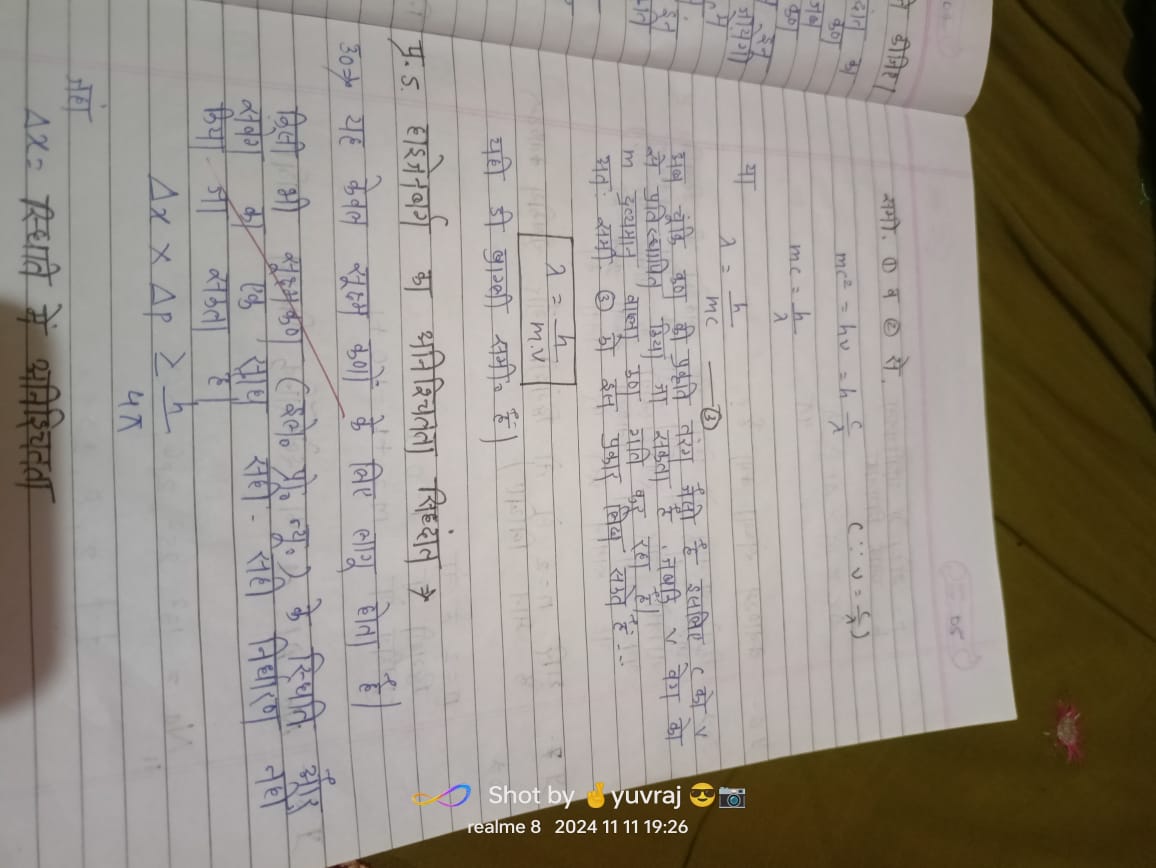 समी. ① व ② से
mc² = hν = h c/λ (∵ ν = c/λ)
mc = h/λ
या
λ = h/mc ——③
अब चूंकि कण की प्रकृति तरंग जैसी है इसलिए c को v
से प्रतिस्थापित किया जा सकता है, जबकि v वेग का
m द्रव्यमान वाला कण गति कर रहा है।
अतः समी. ③ को इस प्रकार लिख सकते हैं...
λ = h/m.v
यही डी ब्रॉग्ली समी० है।
प्र.5. हाइजेनबर्ग का अनिश्चितता सिद्धांत →
उ०→ यह केवल सूक्ष्म कणों के लिए लागू होता है।
किसी भी सूक्ष्मकण (इले० प्रो० न्यू०) के स्थिति और
संवेग का एक साथ सही-सही निर्धारण नहीं
किया जा सकता है।
Δx × Δp ≥ h/4π
जहां
Δx = स्थिति में अनिश्चितता
Shot by ✌️yuvraj 😎📷
realme 8 2024 11 11 19:26